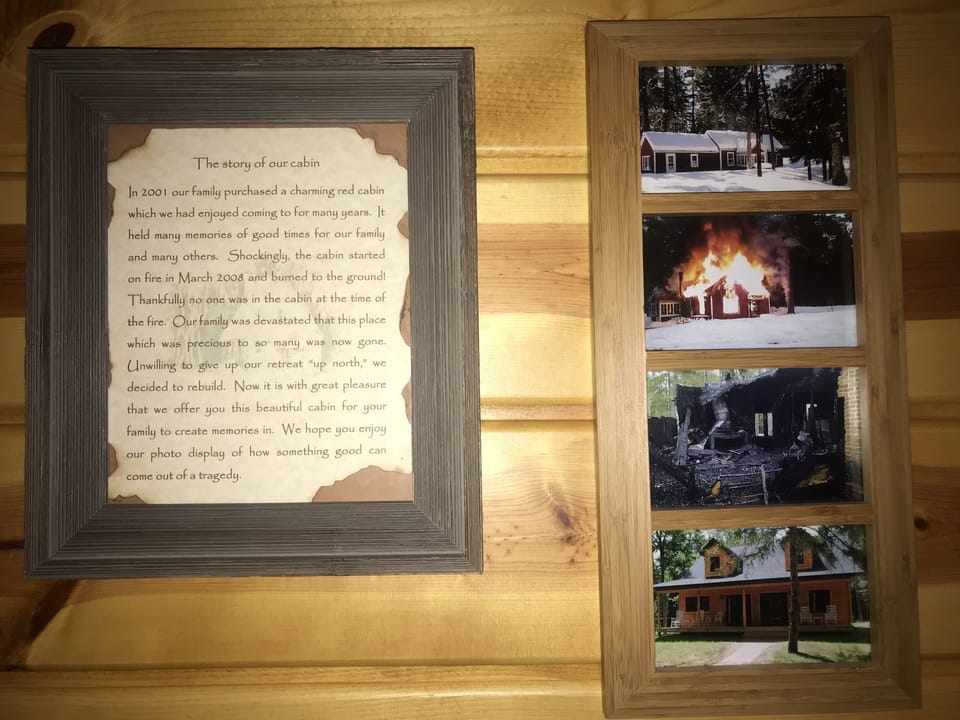 The story of our cabin
In 2001 our family purchased a charming red cabin
which we had enjoyed coming to for many years. It
held many memories of good times for our family
and many others. Shockingly, the cabin started
on fire in March 2008 and burned to the ground!
Thankfully no one was in the cabin at the time of
the fire. Our family was devastated that this place
which was precious to so many was now gone.
Unwilling to give up our retreat "up north," we
decided to rebuild. Now it is with great pleasure
that we offer you this beautiful cabin for your
family to create memories in. We hope you enjoy
our photo display of how something good can
come out of a tragedy.